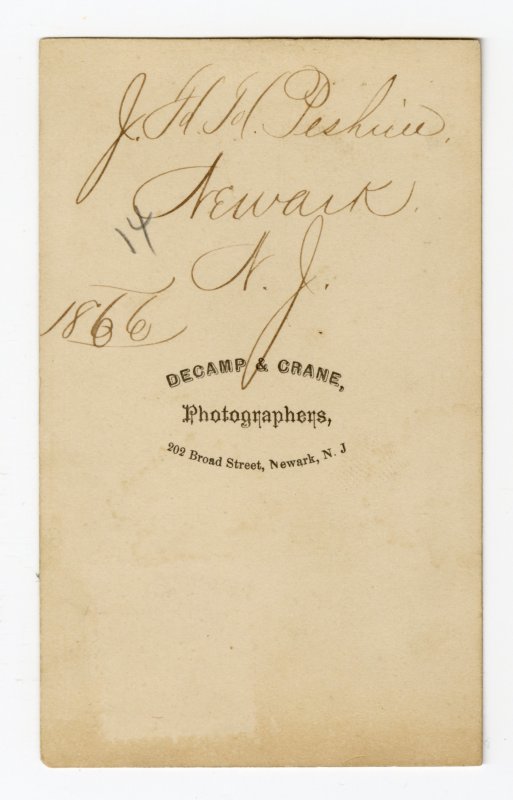 J. H. H. Peshine,
Newark.
N. J.
14
1866
DECAMP & CRANE,
Photographers,
202 Broad Street, Newark, N. J